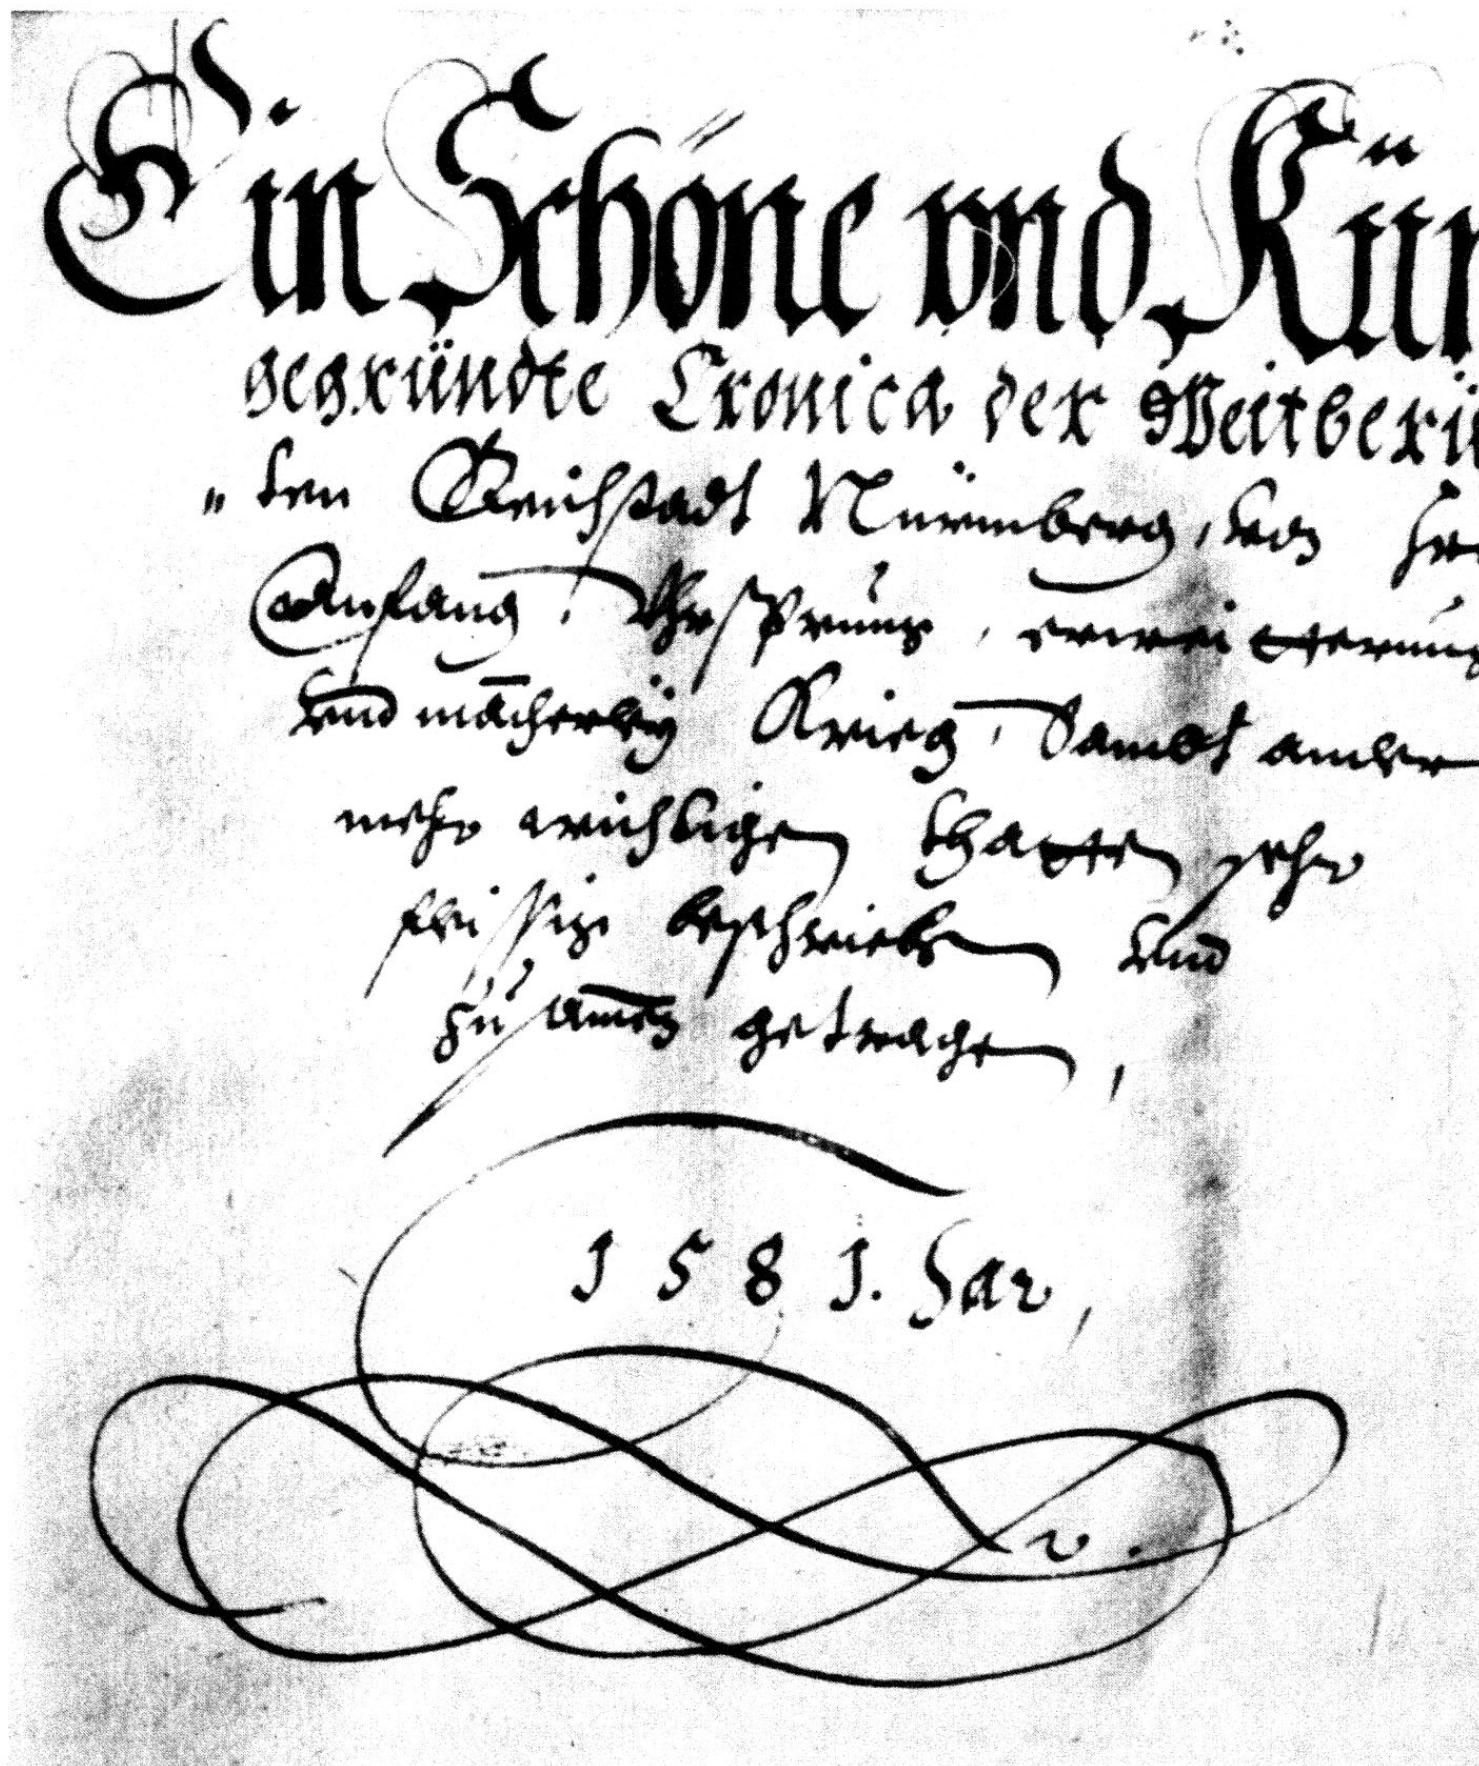 Ein Schöne vnd Kür
gegründte Cronica der Weitberü
„ten Reichstadt Nürmberg, von Jre
Anfang, Vrsprung, erweitterung
vnd mācherley Krieg, Sambt ander
mehr wichtigen thatten sehr
fleissig beschrieben vnd
zusamē getragen,
1581. Jar,